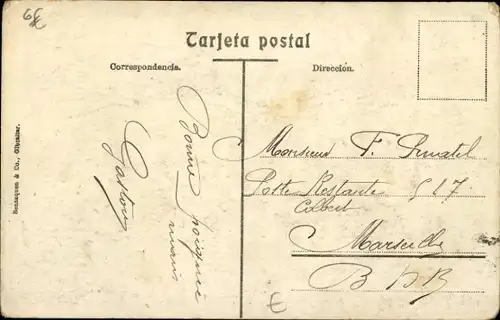 Tarjeta postal
Correspondencia.
Dirección.
Benzaquen & Co., Gibraltar.
Bonne poignée
main
Gaston
Monsieur F.
Poste Restante 517
Colbert
Marseille
B